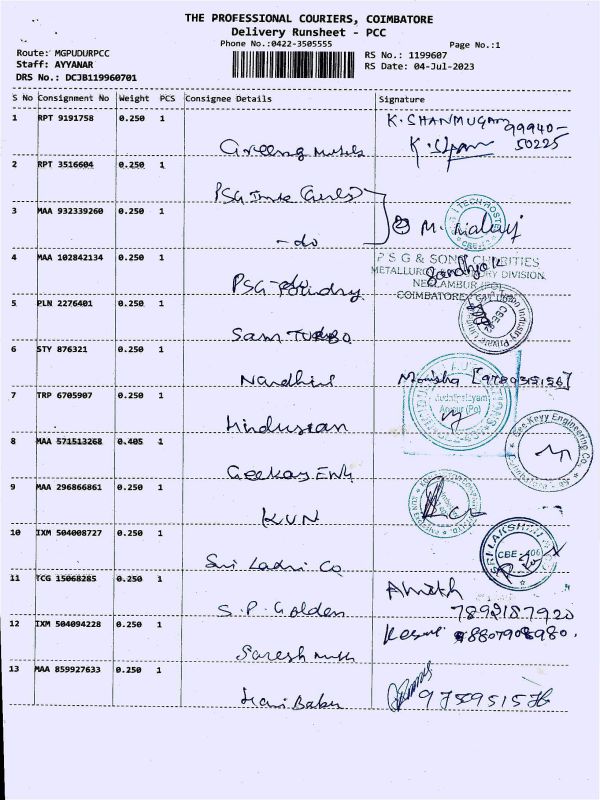 THE PROFESSIONAL COURIERS, COIMBATORE
Delivery Runsheet - PCC
Phone No.:0422-3505555
Page No.:1
Route: MGPUDURPCC
Staff: AYYANAR
DRS No.: DCJB119960701
RS No.: 1199607
RS Date: 04-Jul-2023
S No Consignment No Weight PCS Consignee Details Signature
1 RPT 9191758 0.250 1 K. SHANMUGAM 99940-50225
2 RPT 3516604 0.250 1 PSG
3 MAA 932339260 0.250 1 - do
4 MAA 102842134 0.250 1 PSG Foundry
PSG & SONS CHARITIES
METALLURGY FOUNDRY DIVISION
NEELAMBUR
COIMBATORE
5 PLN 2276401 0.250 1 Sam TURBO
6 STY 876321 0.250 1 Nandhini Monisha
7 TRP 6705907 0.250 1 Hindustan
8 MAA 571513268 0.405 1 Geekay ENG
Engineering Co.
9 MAA 296866861 0.250 1 KUN
10 IXM 504008727 0.250 1 Sri Co
SRI LAKSHMI
CBE
11 TCG 15068285 0.250 1 S.P. Golden 7892187920
12 IXM 504094228 0.250 1 Suresh
13 MAA 859927633 0.250 1 Hari Babu